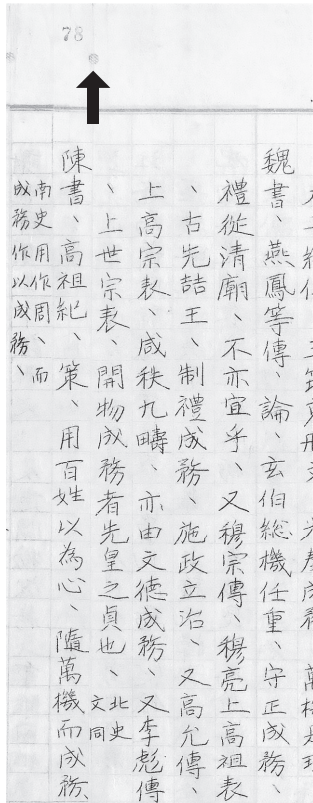 78
魏書、燕鳳等傳、論、玄伯總機任重、守正成務、
禮從清廟、不亦宜乎、又穆宗傳、穆亮上高祖表
、古先喆王、制禮成務、施政立治、又高允傳、
上高宗表、咸秩九疇、亦由文德成務、又李彪傳
、上世宗表、開物成務者先皇之貞也、北史文同
陳書、高祖紀、策、用百姓以為心、隨萬機而成務
南史用作周、而
成務作以成務、